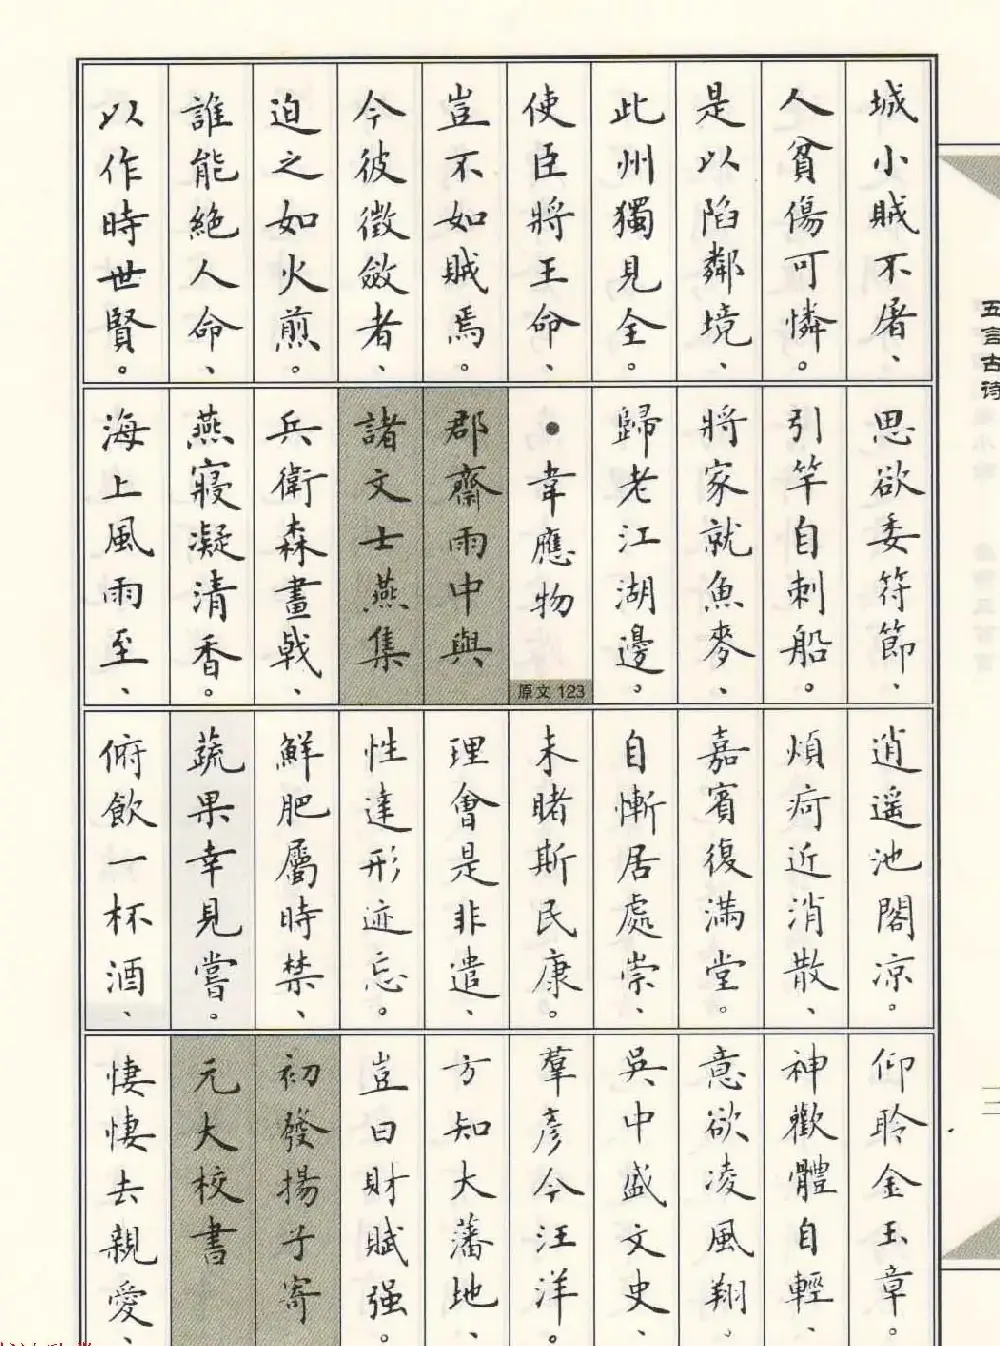 城小賊不屠、
人貧傷可憐。
是以陷鄰境、
此州獨見全。
使臣將王命、
豈不如賊焉。
今彼徵斂者、
迫之如火煎。
誰能絕人命、
以作時世賢。
思欲委符節、
引竿自刺船。
將家就魚麥、
歸老江湖邊。
●韋應物
原文 123
郡齋雨中與
諸文士燕集
兵衛森畫戟、
燕寢凝清香。
海上風雨至、
逍遥池閣凉。
煩疴近消散、
嘉賓復滿堂。
自慚居處崇、
未睹斯民康。
理會是非遣、
性達形迹忘。
鮮肥屬時禁、
蔬果幸見嘗。
俯飲一杯酒、
仰聆金玉章。
神歡體自輕、
意欲凌風翔。
吳中盛文史、
羣彥今汪洋。
方知大藩地、
豈曰財賦强。
初發揚子寄
元大校書
悽悽去親愛、
五言古诗